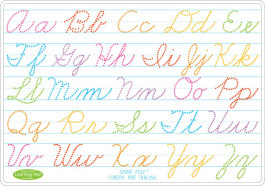 Aa Bb Cc Dd Ee
Ff Gg Hh Ii Jj Kk
Ll Mm Nn Oo Pp
Qq Rr Ss Tt Uu
Vv Ww Xx Yy Zz
Learning Mat
SMART POLY™
CURSIVE MAT TRACING